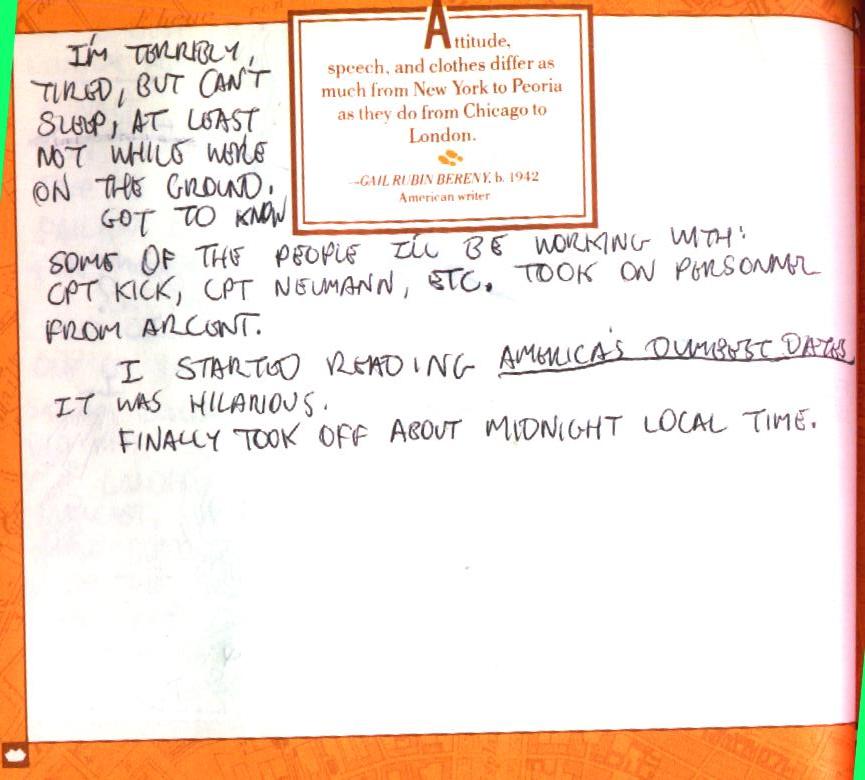 I'M TERRIBLY,
TIRED, BUT CAN'T
SLEEP, AT LEAST
NOT WHILE WE'RE
ON THE GROUND.
GOT TO KNOW
Attitude,
speech, and clothes differ as
much from New York to Peoria
as they do from Chicago to
London.
—GAIL RUBIN BERENY, b. 1942
American writer
SOME OF THE PEOPLE I'LL BE WORKING WITH:
CPT KICK, CPT NEUMANN, ETC. TOOK ON PERSONNEL
FROM ARCENT.
I STARTED READING AMERICA'S DUMBEST DATES
IT WAS HILARIOUS.
FINALLY TOOK OFF ABOUT MIDNIGHT LOCAL TIME.